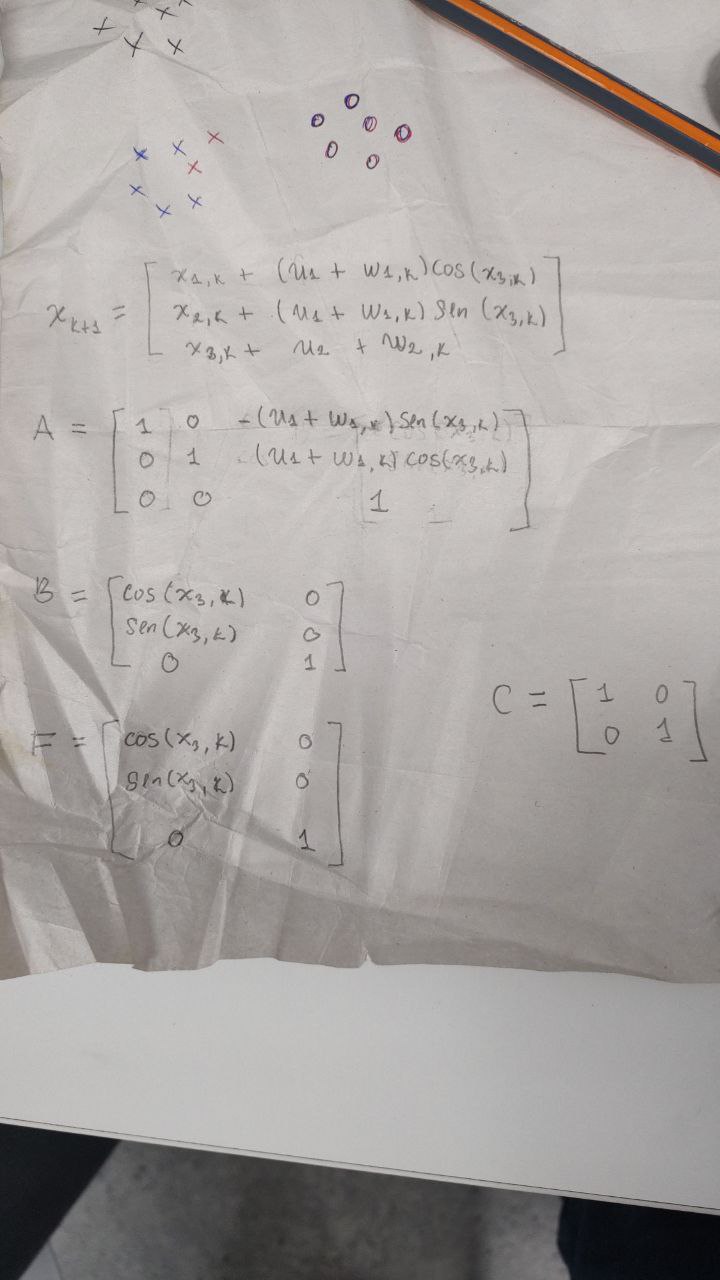 x_{k+1} = [ x_{1,k} + (u_1 + w_{1,k}) cos(x_{3,k})
x_{2,k} + (u_1 + w_{1,k}) sen(x_{3,k})
x_{3,k} + u_2 + w_{2,k} ]
A = [ 1 0 -(u_1 + w_{1,k}) sen(x_{3,k})
0 1 (u_1 + w_{1,k}) cos(x_{3,k})
0 0 1 ]
B = [ cos(x_{3,k}) 0
sen(x_{3,k}) 0
0 1 ]
C = [ 1 0
0 1 ]
F = [ cos(x_{3,k}) 0
sen(x_{3,k}) 0
0 1 ]